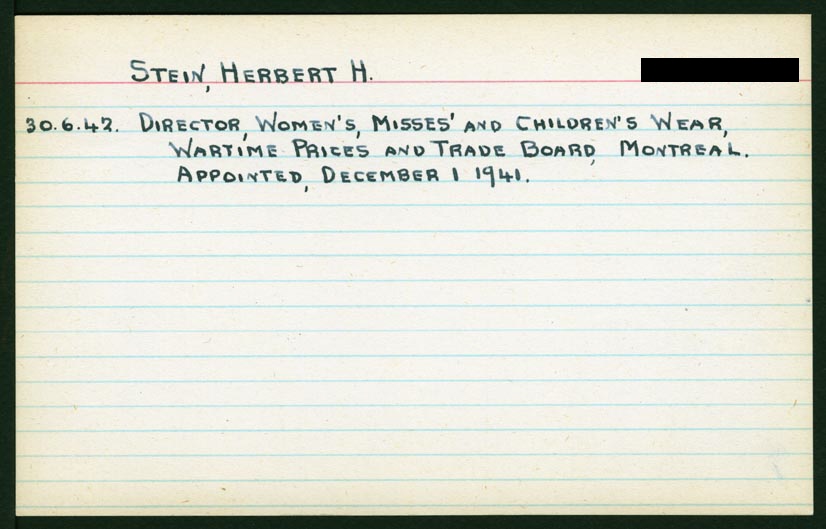 STEIN, HERBERT H.
30.6.42. DIRECTOR, WOMEN'S, MISSES' AND CHILDREN'S WEAR,
WARTIME PRICES AND TRADE BOARD, MONTREAL.
APPOINTED, DECEMBER 1 1941.